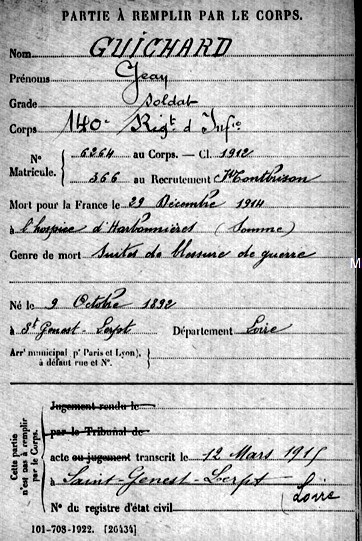 PARTIE À REMPLIR PAR LE CORPS.
Nom GUICHARD
Prénoms Jean
Grade Soldat
Corps 140e Rigt d'Infie
N° Matricule. { 6264 au Corps. — Cl. 1912
366 au Recrutement Montbrison
Mort pour la France le 29 Décembre 1914
à l'hospice d'Harbonnières (Somme)
Genre de mort Suites de blessure de guerre
M
Né le 9 Octobre 1892
à St Genest-Lerpt Département Loire
Arrt municipal (pr Paris et Lyon), à défaut rue et N°.
Cette partie n'est pas à remplir par le Corps.
Jugement rendu le
par le Tribunal de
acte ou jugement transcrit le 12 Mars 1915
à Saint-Genest-Lerpt (Loire
N° du registre d'état civil
101-708-1922. [26434]